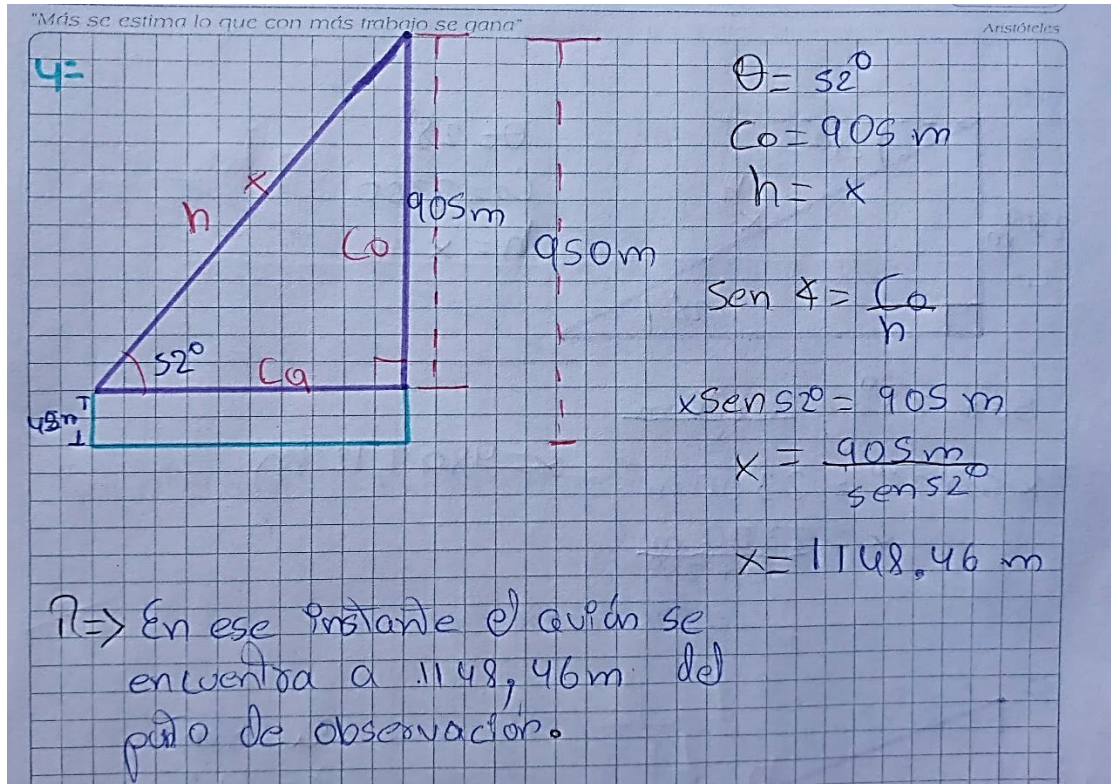 "Más se estima lo que con más trabajo se gana"
Aristóteles
4=
θ= 52°
Co= 905 m
h= x
h
x
Co
905m
950m
52°
Ca
45m
Sen ∡= Co
h
xsen52°= 905 m
x = 905 m
sen52°
x= 1148,46 m
R=> En ese instante el avión se
encuentra a 1148,46m del
de observación.